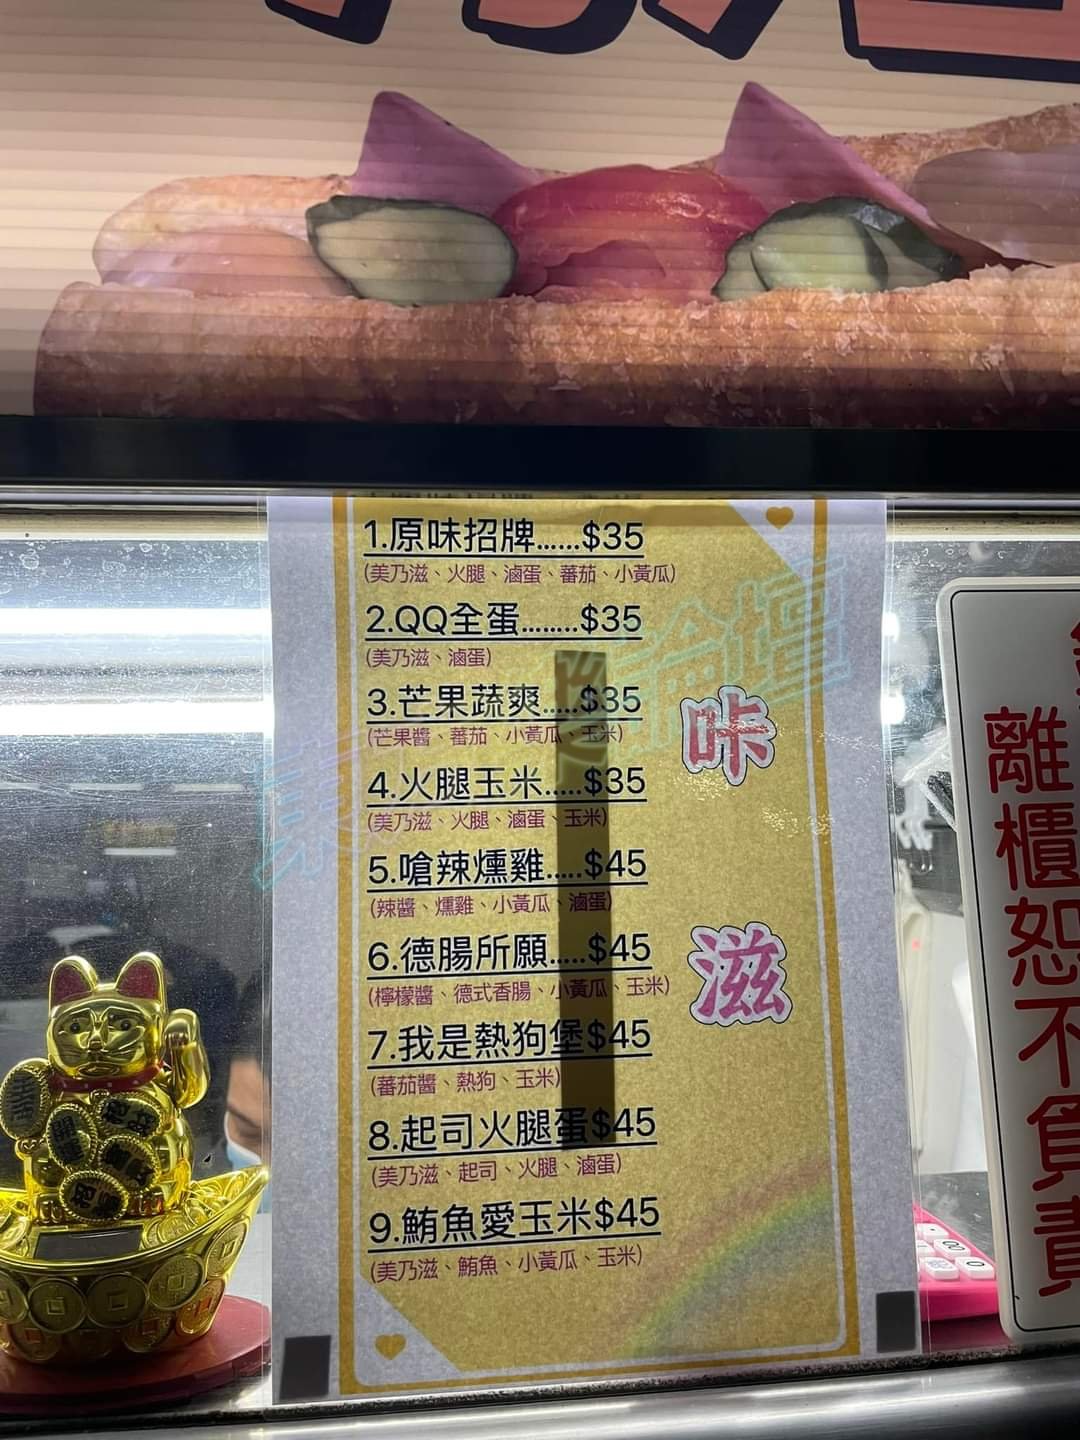 1.原味招牌......$35
(美乃滋、火腿、滷蛋、蕃茄、小黃瓜)
2.QQ全蛋........$35
(美乃滋、滷蛋)
3.芒果蔬爽.....$35
(芒果醬、蕃茄、小黃瓜、玉米)
4.火腿玉米.....$35
(美乃滋、火腿、滷蛋、玉米)
5.嗆辣燻雞.....$45
(辣醬、燻雞、小黃瓜、滷蛋)
6.德腸所願.....$45
(檸檬醬、德式香腸、小黃瓜、玉米)
7.我是熱狗堡$45
(蕃茄醬、熱狗、玉米)
8.起司火腿蛋$45
(美乃滋、起司、火腿、滷蛋)
9.鮪魚愛玉米$45
(美乃滋、鮪魚、小黃瓜、玉米)
咔
滋
離櫃恕不負責
論壇